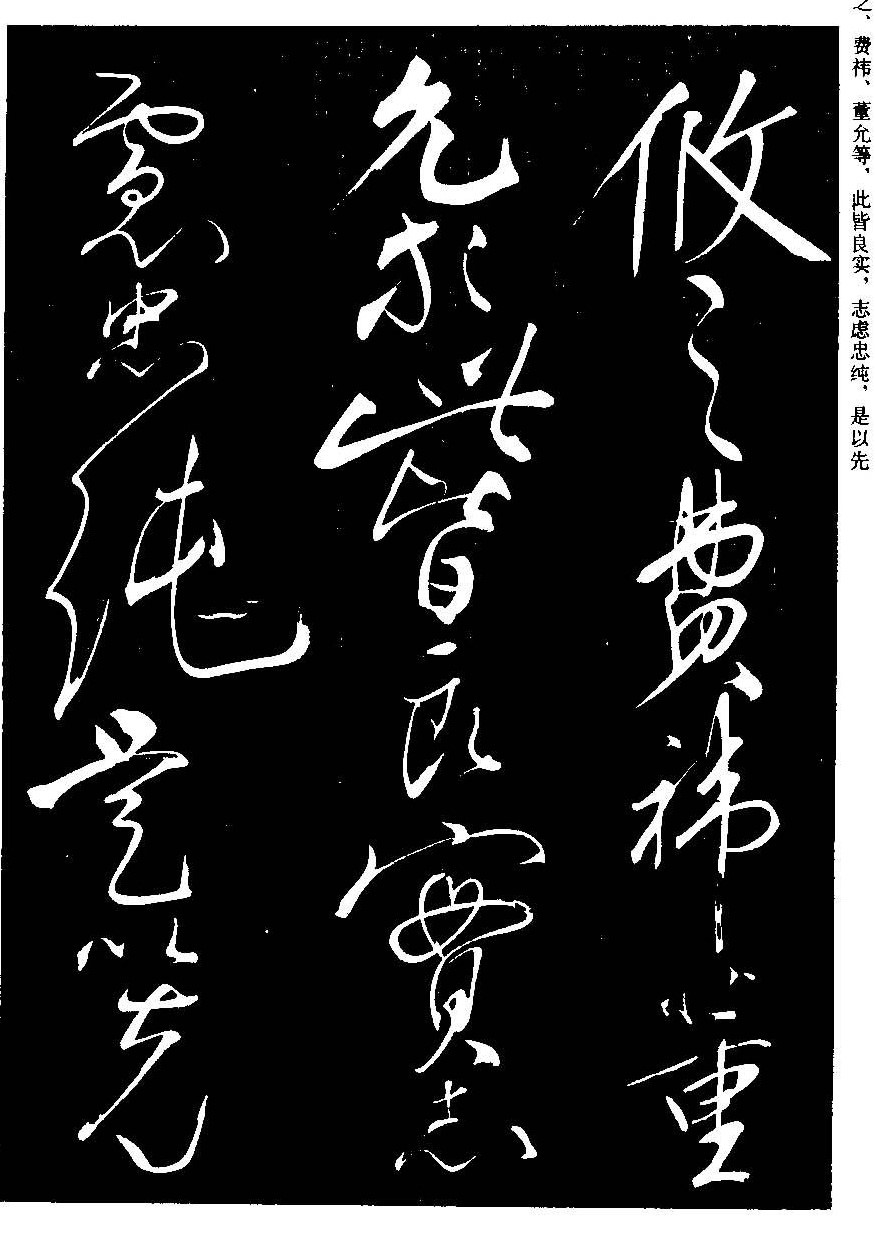 之、费祎、董允等，此皆良实，志虑忠纯，是以先
攸之費禕董
允等此皆良實志
慮忠純是以先